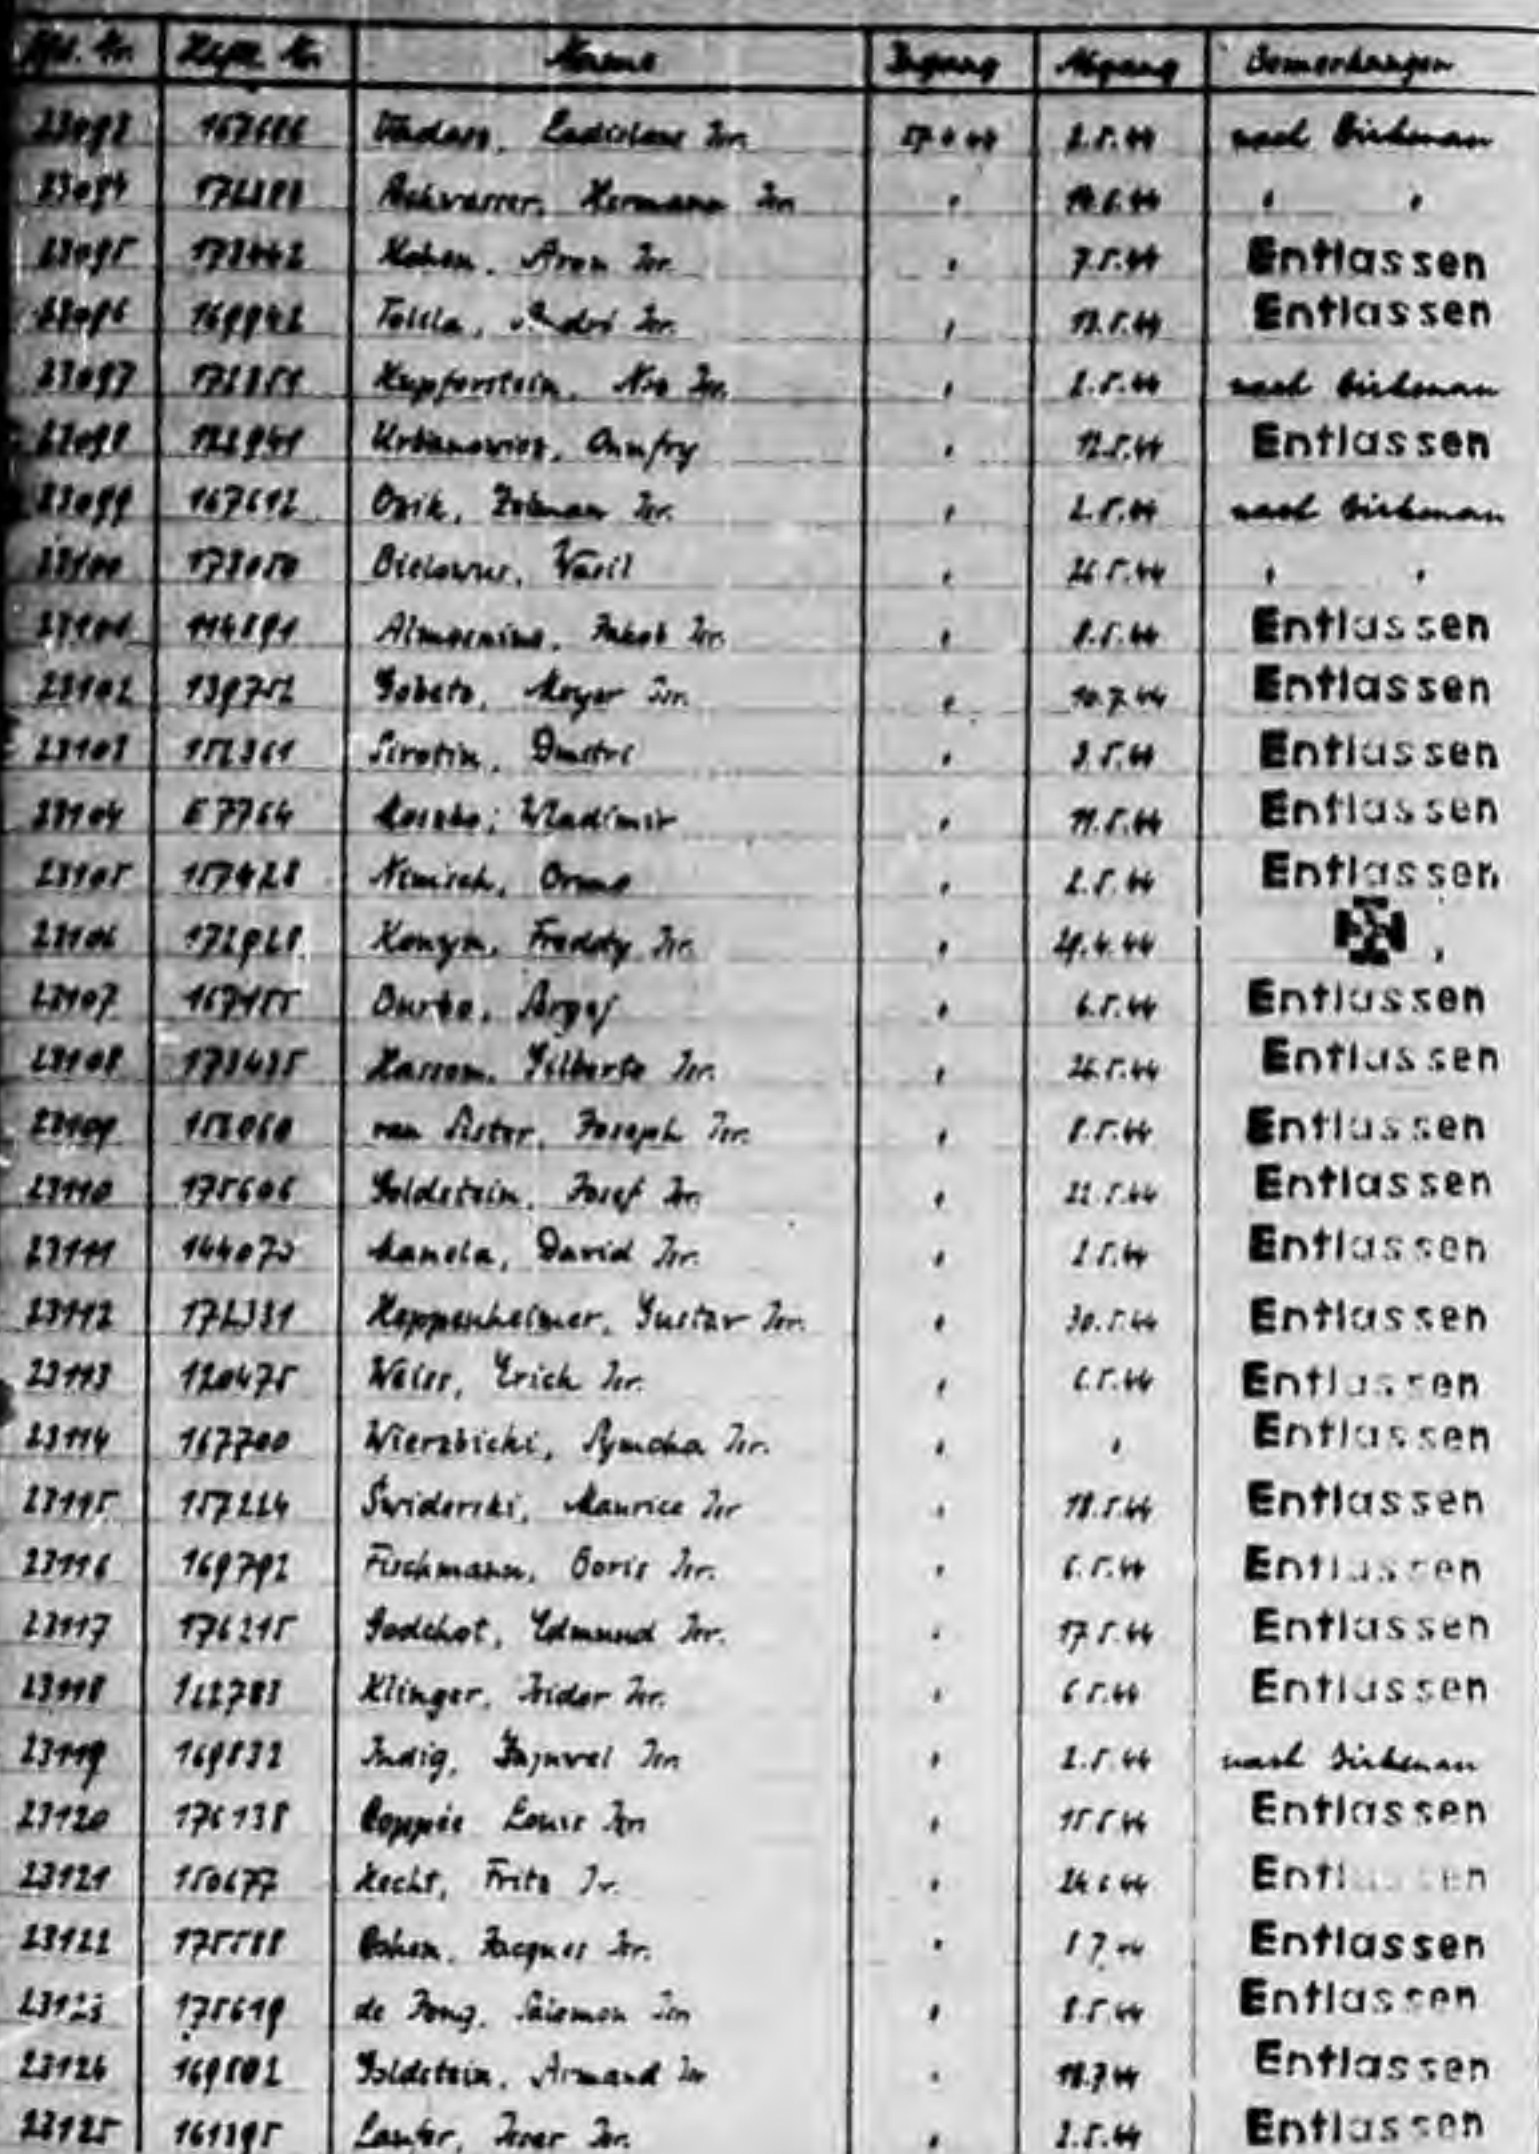 Lfd. Nr. Häftl. Nr. Name Zugang Abgang Bemerkungen
23093 167666 Ladislaus Isr. 27.4.44 2.5.44 nach Birkenau
23094 Hermann Isr. " " "
23095 173442 Kohen, Aron Isr. " 7.5.44 Entlassen
23096 169942 Isr. " 13.5.44 Entlassen
23097 172851 Kupferstein, Isr. " 2.5.44 nach Birkenau
23098 122941 Urbanowicz, Onufry " 12.5.44 Entlassen
23099 167612 Isr. " 2.5.44 nach Birkenau
23100 173050 Wasil " 26.5.44 " "
23101 114891 Almosnino, Jakob Isr. " 8.5.44 Entlassen
23102 139752 Meyer Isr. " 10.7.44 Entlassen
23103 152361 Sirotin, Dmitri " 3.5.44 Entlassen
23104 E7764 Wladimir " 11.5.44 Entlassen
23105 157428 Nemisch, " 2.5.44 Entlassen
23106 172928 Freddy Isr. " 29.4.44
23107 167155 " 6.5.44 Entlassen
23108 173435 Hasson, Gilberto Isr. " 26.5.44 Entlassen
23109 152060 van Joseph Isr. " 8.5.44 Entlassen
23110 175606 Goldstein, Josef Isr. " 22.5.44 Entlassen
23111 144073 Manela, David Isr. " 2.5.44 Entlassen
23112 172331 Heppenheimer, Gustav Isr. " 30.5.44 Entlassen
23113 120475 Weiss, Erich Isr. " 6.5.44 Entlassen
23114 167700 Wierzbicki, Symcha Isr. " " Entlassen
23115 157224 Swiderski, Maurice Isr " 18.5.44 Entlassen
23116 169792 Fischmann, Boris Isr. " 6.5.44 Entlassen
23117 176215 Godchot, Edmund Isr. " 17.5.44 Entlassen
23118 122783 Klinger, Isidor Isr. " 6.5.44 Entlassen
23119 169832 Indig, Isr " 2.5.44 nach Birkenau
23120 176138 Coppée Louis Isr " 15.5.44 Entlassen
23121 150677 Hecht, Fritz Isr. " 24.6.44 Entlassen
23122 175588 Cohen, Jacques Isr. " Entlassen
23123 175619 de Jong, Salomon Isr " 8.5.44 Entlassen
23124 169802 Goldstein, Armand Isr " 18.7.44 Entlassen
23125 161395 Isr. " 2.5.44 Entlassen